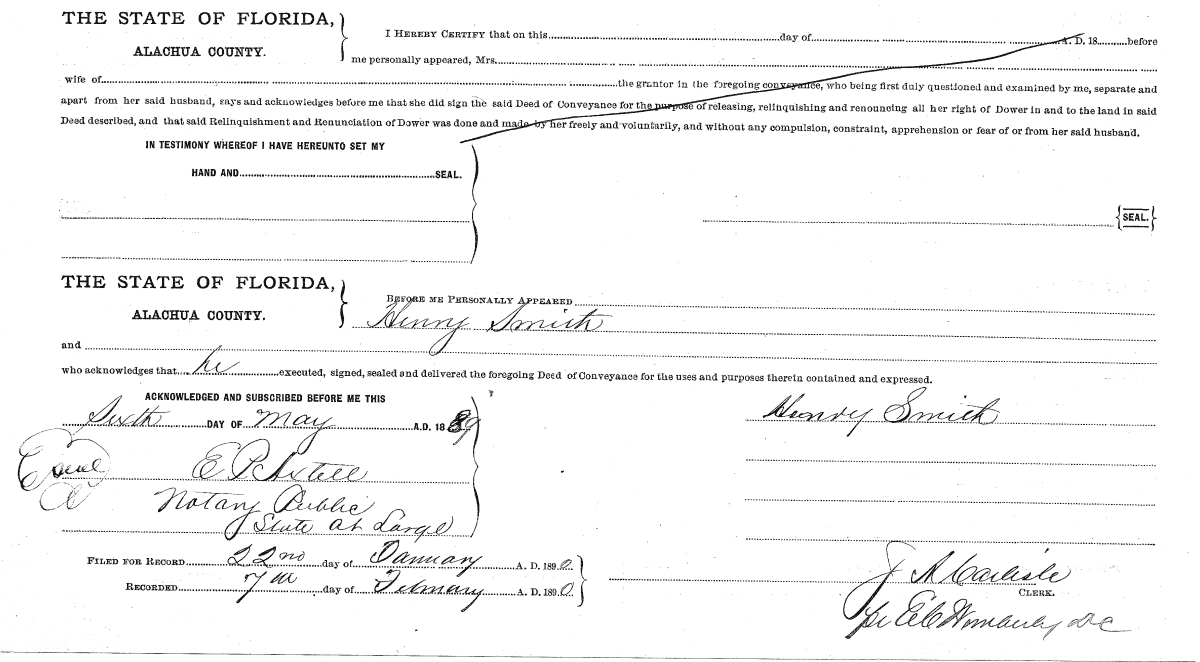 THE STATE OF FLORIDA,
ALACHUA COUNTY.
I HEREBY CERTIFY that on this day of A. D. 18 before
me personally appeared, Mrs.
wife of the grantor in the foregoing conveyance, who being first duly questioned and examined by me, separate and
apart from her said husband, says and acknowledges before me that she did sign the said Deed of Conveyance for the purpose of releasing, relinquishing and renouncing all her right of Dower in and to the land in said
Deed described, and that said Relinquishment and Renunciation of Dower was done and made by her freely and voluntarily, and without any compulsion, constraint, apprehension or fear of or from her said husband.
IN TESTIMONY WHEREOF I HAVE HEREUNTO SET MY
HAND AND SEAL.
SEAL.
THE STATE OF FLORIDA,
ALACHUA COUNTY.
BEFORE ME PERSONALLY APPEARED
Henry Smith
and
who acknowledges that he executed, signed, sealed and delivered the foregoing Deed of Conveyance for the uses and purposes therein contained and expressed.
ACKNOWLEDGED AND SUBSCRIBED BEFORE ME THIS
Sixth DAY OF May A.D. 1889
Henry Smith
seal E P Axtell
Notary Public
State at Large
FILED FOR RECORD 22nd day of January A. D. 1890
RECORDED 7th day of February A. D. 1890
J A Carlisle
CLERK.
pr E C Wimberly DC